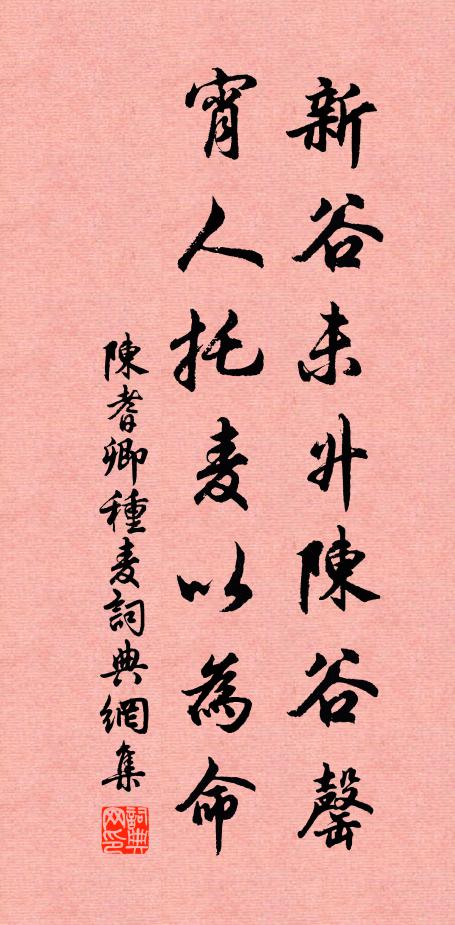 新谷未升陳谷罄
宵人托麦以為命
陳耆卿種麦詞典網集
詞典網印